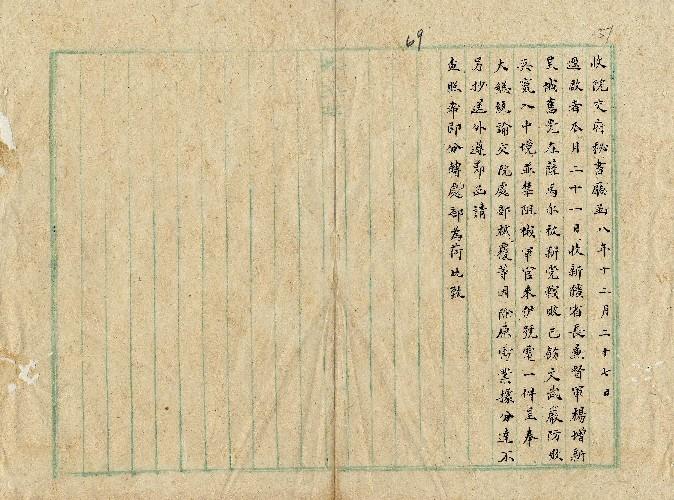 69
收院交府秘書廳函八年十二月二十七日
逕啟者本月二十一日收新疆省長兼督軍楊增新
呈俄舊党在薩馬尔被新党戰敗已飭文武嚴防敗
兵竄入中境並禁阻俄軍官來伊號電一件呈奉
大總統諭交院處部核覆等因除原電業據分達不
另抄送外遵郎函請
查照希即分轉處部為荷此致